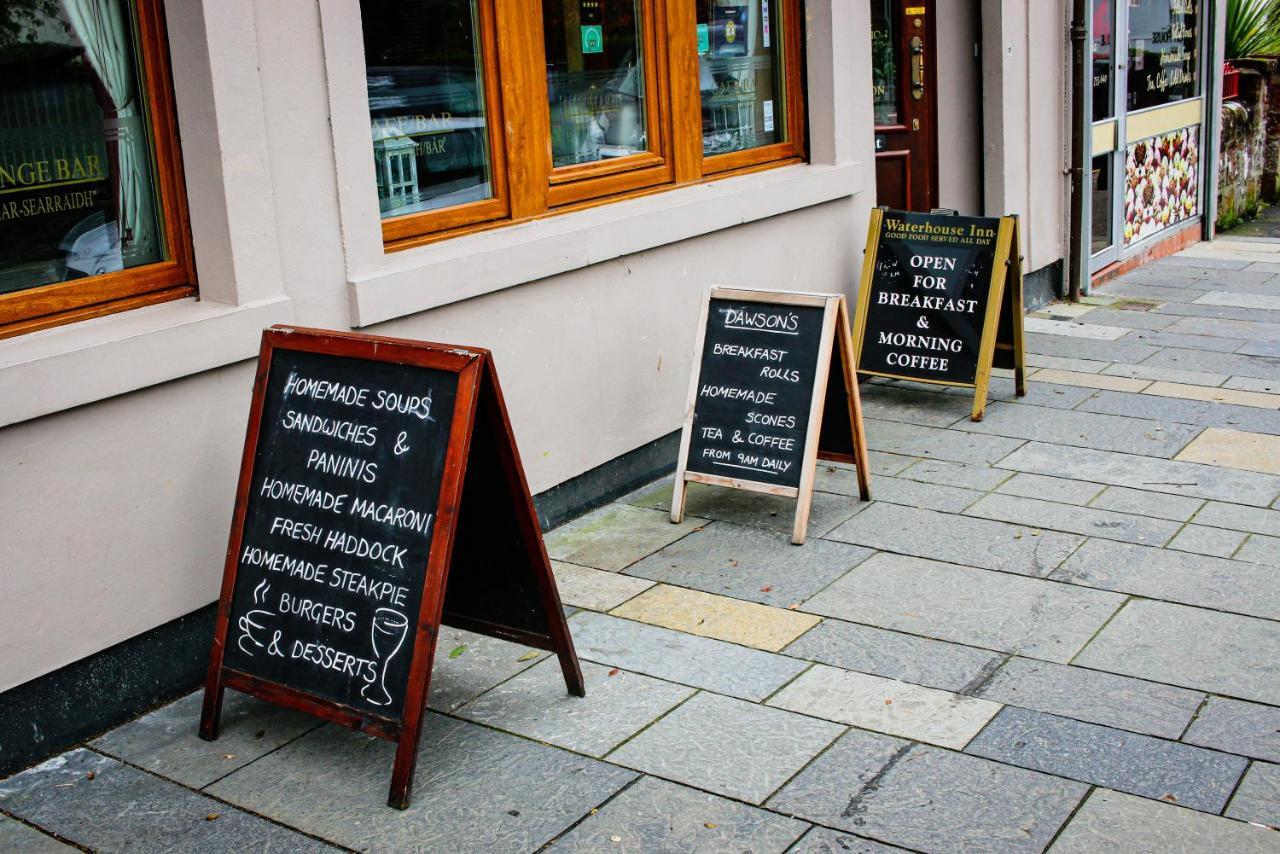 HOMEMADE SOUPS
SANDWICHES &
PANINIS
HOMEMADE MACARONI
FRESH HADDOCK
HOMEMADE STEAKPIE
BURGERS
& DESSERTS
DAWSON'S
BREAKFAST
ROLLS
HOMEMADE
SCONES
TEA & COFFEE
FROM 9AM DAILY
Waterhouse Inn
GOOD FOOD SERVED ALL DAY
OPEN
FOR
BREAKFAST
&
MORNING
COFFEE
NGE BAR
AR-SEARRAIDH"
FE/BAR
H/BÀR
Homemade Soup
Tea, Coffee Cold Drinks